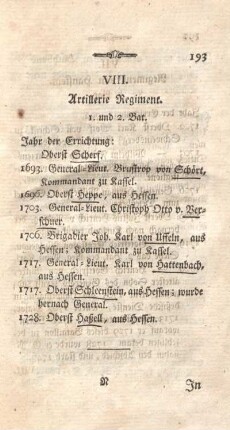 193
VIII.
Artillerie Regiment.
1. und 2. Bat.
Jahr der Errichtung:
Oberst Scherf.
1693. General-Lieut. Brustrop von Schört,
Kommandant zu Kassel.
1696. Oberst Heppe, aus Hessen.
1703. General-Lieut. Christoph Otto v. Ver-
schuer.
1706. Brigadier Joh. Karl von Uffeln, aus
Hessen: Kommandant zu Kassel.
1717. General-Lieut. Karl von Hattenbach,
aus Hessen.
1717. Oberst Schleenstein, aus Hessen: wurde
hernach General.
1728. Oberst Haßell, aus Hessen.
N
In